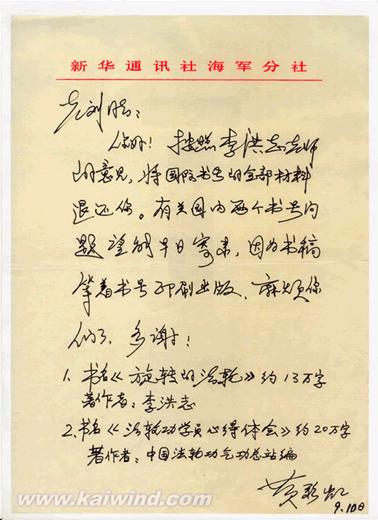 新华通讯社海军分社
老刘
你好！按照李洪志老师
的意见，将国际书号的全部材料
退还你。有关国内两个书号问
题望能早日寄来，因为书稿
等着书号印刷出版，麻烦你
们了，多谢！
1、书名《旋转的法轮》约13万字
著作者：李洪志
2、书名《法轮功学员心得体会》约20万字
著作者：中国法轮功气功总站编
9.10日
www.kaiwind.com